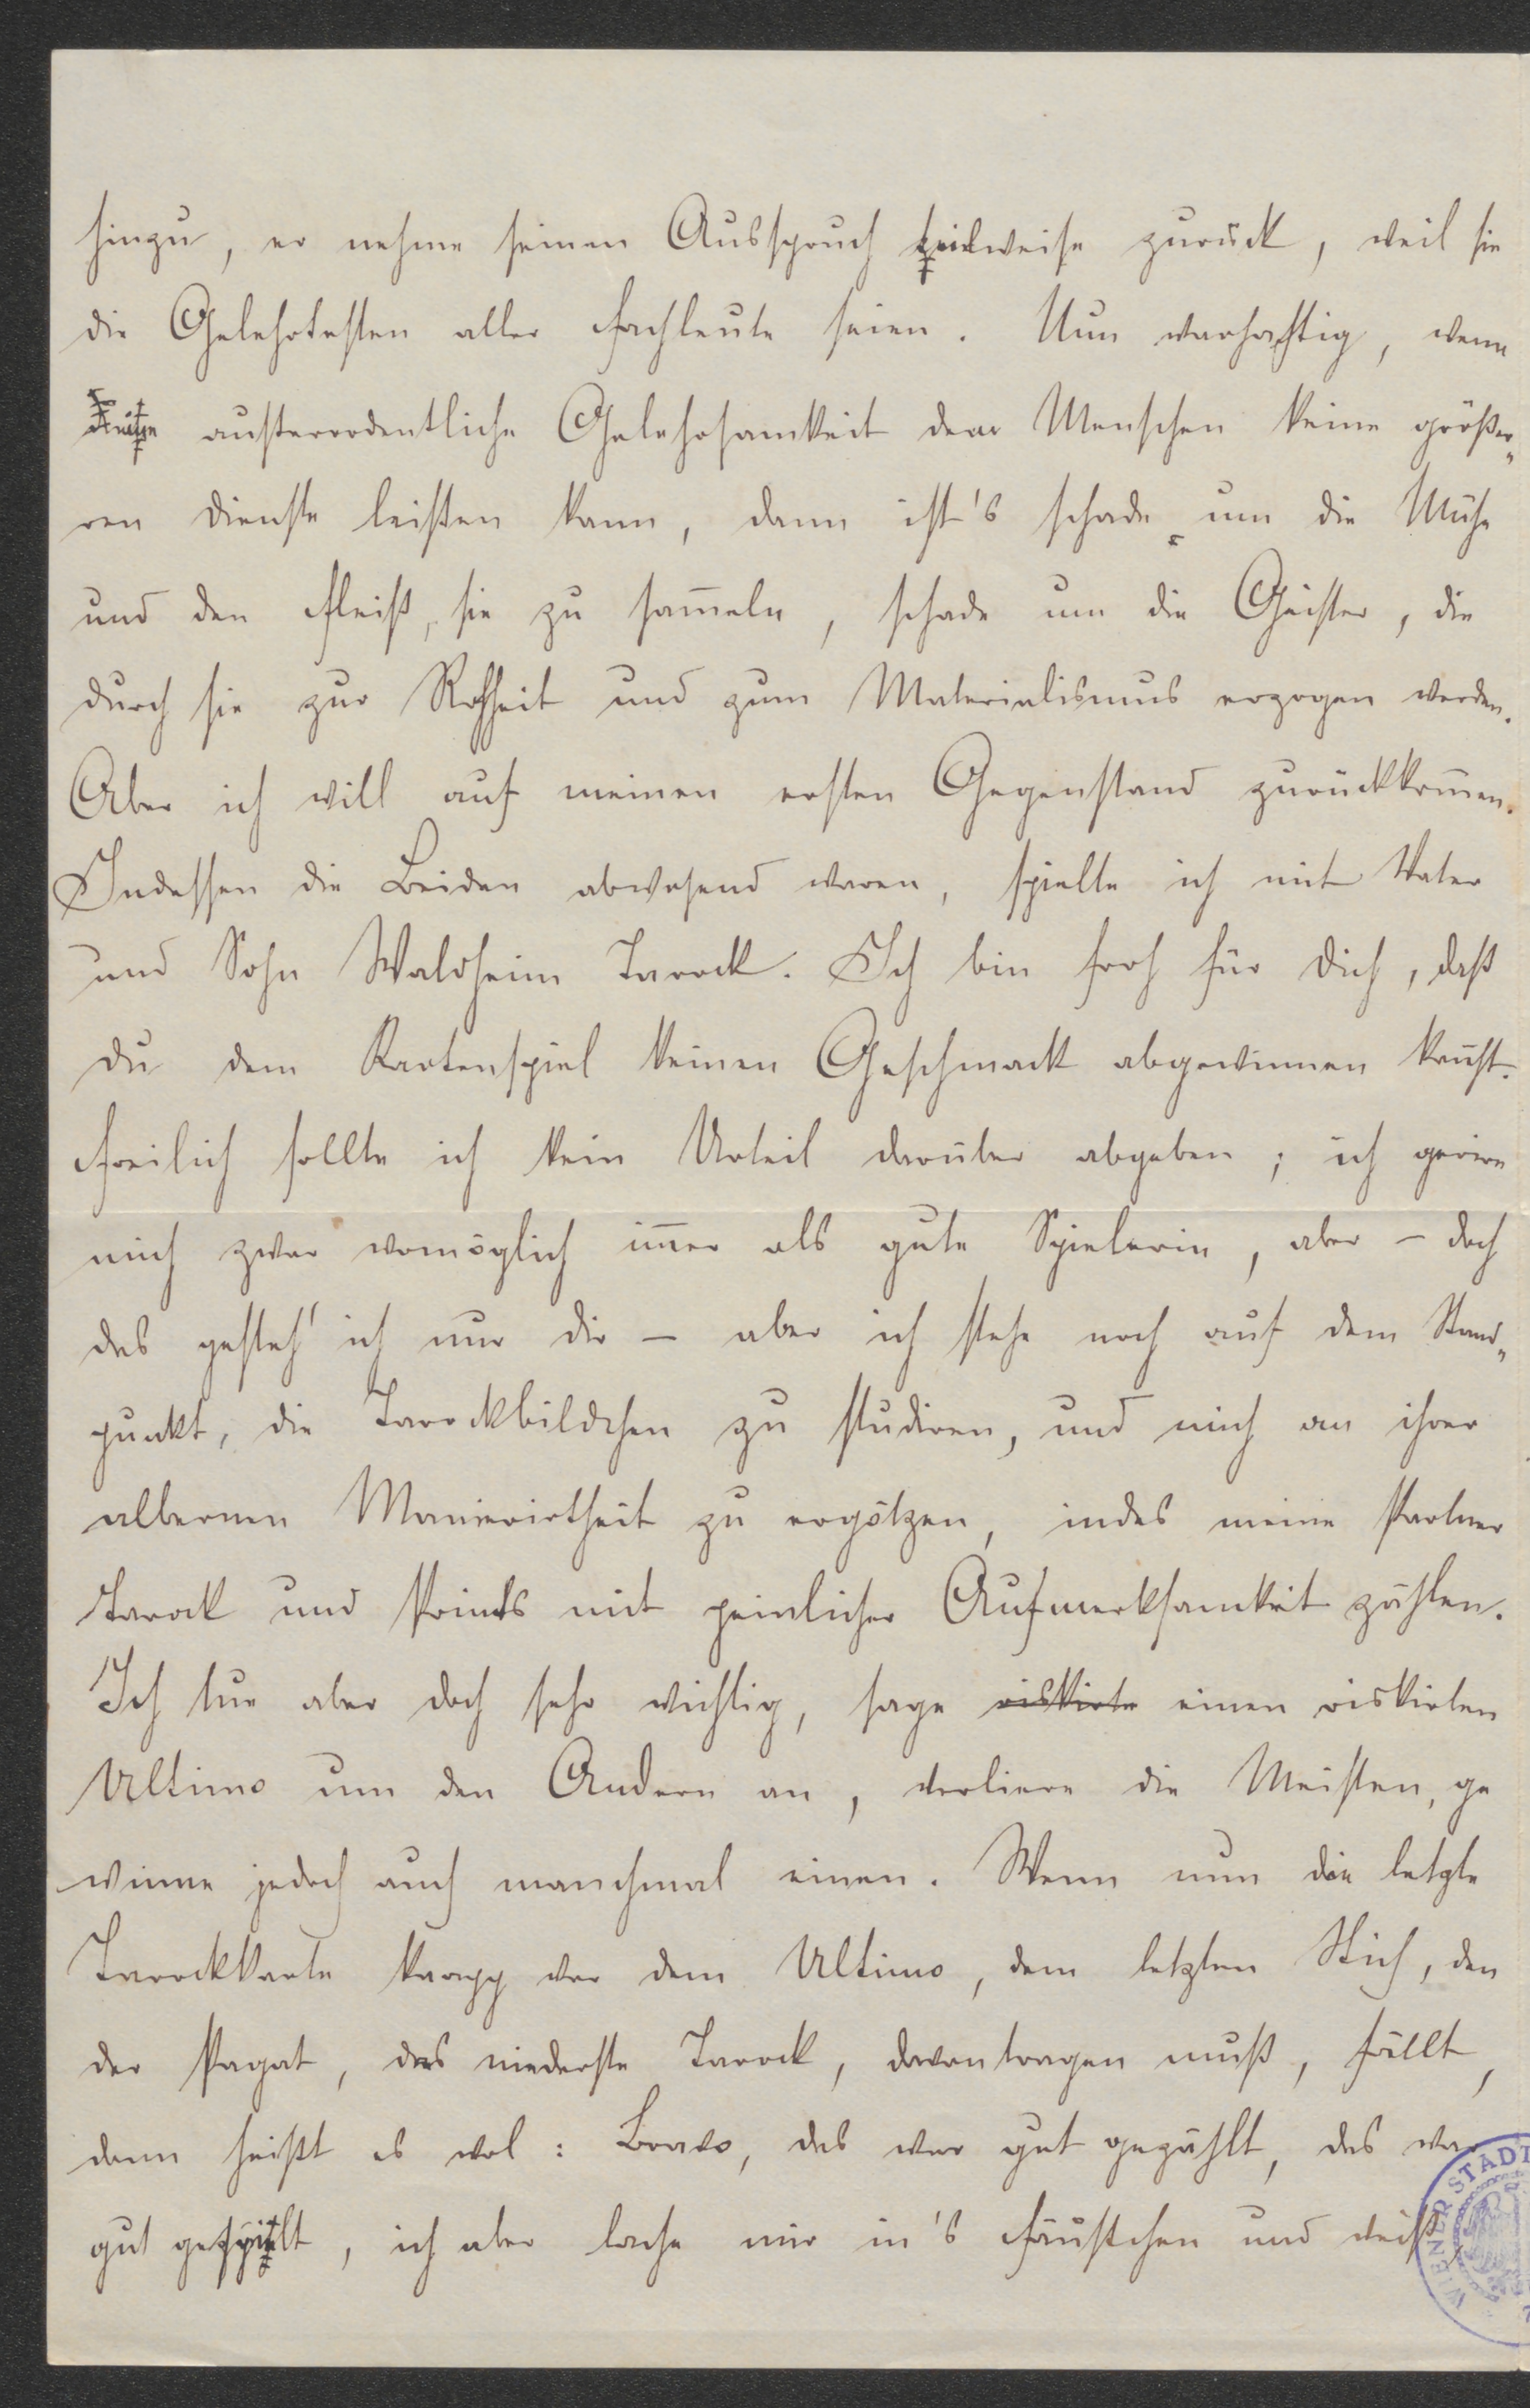 hinzu, er nehme seinen Ausspruch teilweise zurück, weil sie
die Gelehrtesten aller Fachleute seien. Nun warhaftig, wenn
diese ausserordentliche Gelehrsamkeit dem Menschen keine größe„
ren Dienste leisten kann, dann ist's schade um die Mühe
und den Fleiß, sie zu sam̄eln, schade um die Geister, die
durch sie zur Rohheit und zum Materialismus erzogen werden.
Aber ich will auf meinen ersten Gegenstand zurückkom̄en.
Indessen die Beiden abwesend waren, spielte ich mit Vater
und Sohn Waldheim Tarock. Ich bin froh für Dich, daß
du dem Kartenspiel keinen Geschmack abgewinnen kan̄st.
Freilich sollte ich kein Urteil darüber abgeben; ich gerire
mich zwar womöglich im̄er als gute Spielerin, aber – doch
das gesteh' ich nur dir – aber ich stehe noch auf dem Stand„
punkt, die Tarockbildchen zu studiren, und mich an ihrer
albernen Manierirtheit zu ergötzen, indes meine Partner
Tarock und Points mit peinlicher Aufmerksamkeit zählen.
Ich tue aber doch sehr wichtig, sage riskirte einen riskirten
Ultimo um den Andern an, verliere die Meisten, ge
winne jedoch auch manchmal einen. Wenn nun die letzte
Tarockkarte knapp vor dem Ultimo, dem letzten Stich, den
der Pagat, das niederste Tarock, davontragen muß, fällt,
dann heißt es wol: Bravo, das war gut gezählt, das war
gut gespielt, ich aber lache mir in's Fäustchen und weiß,
WIENER STADT